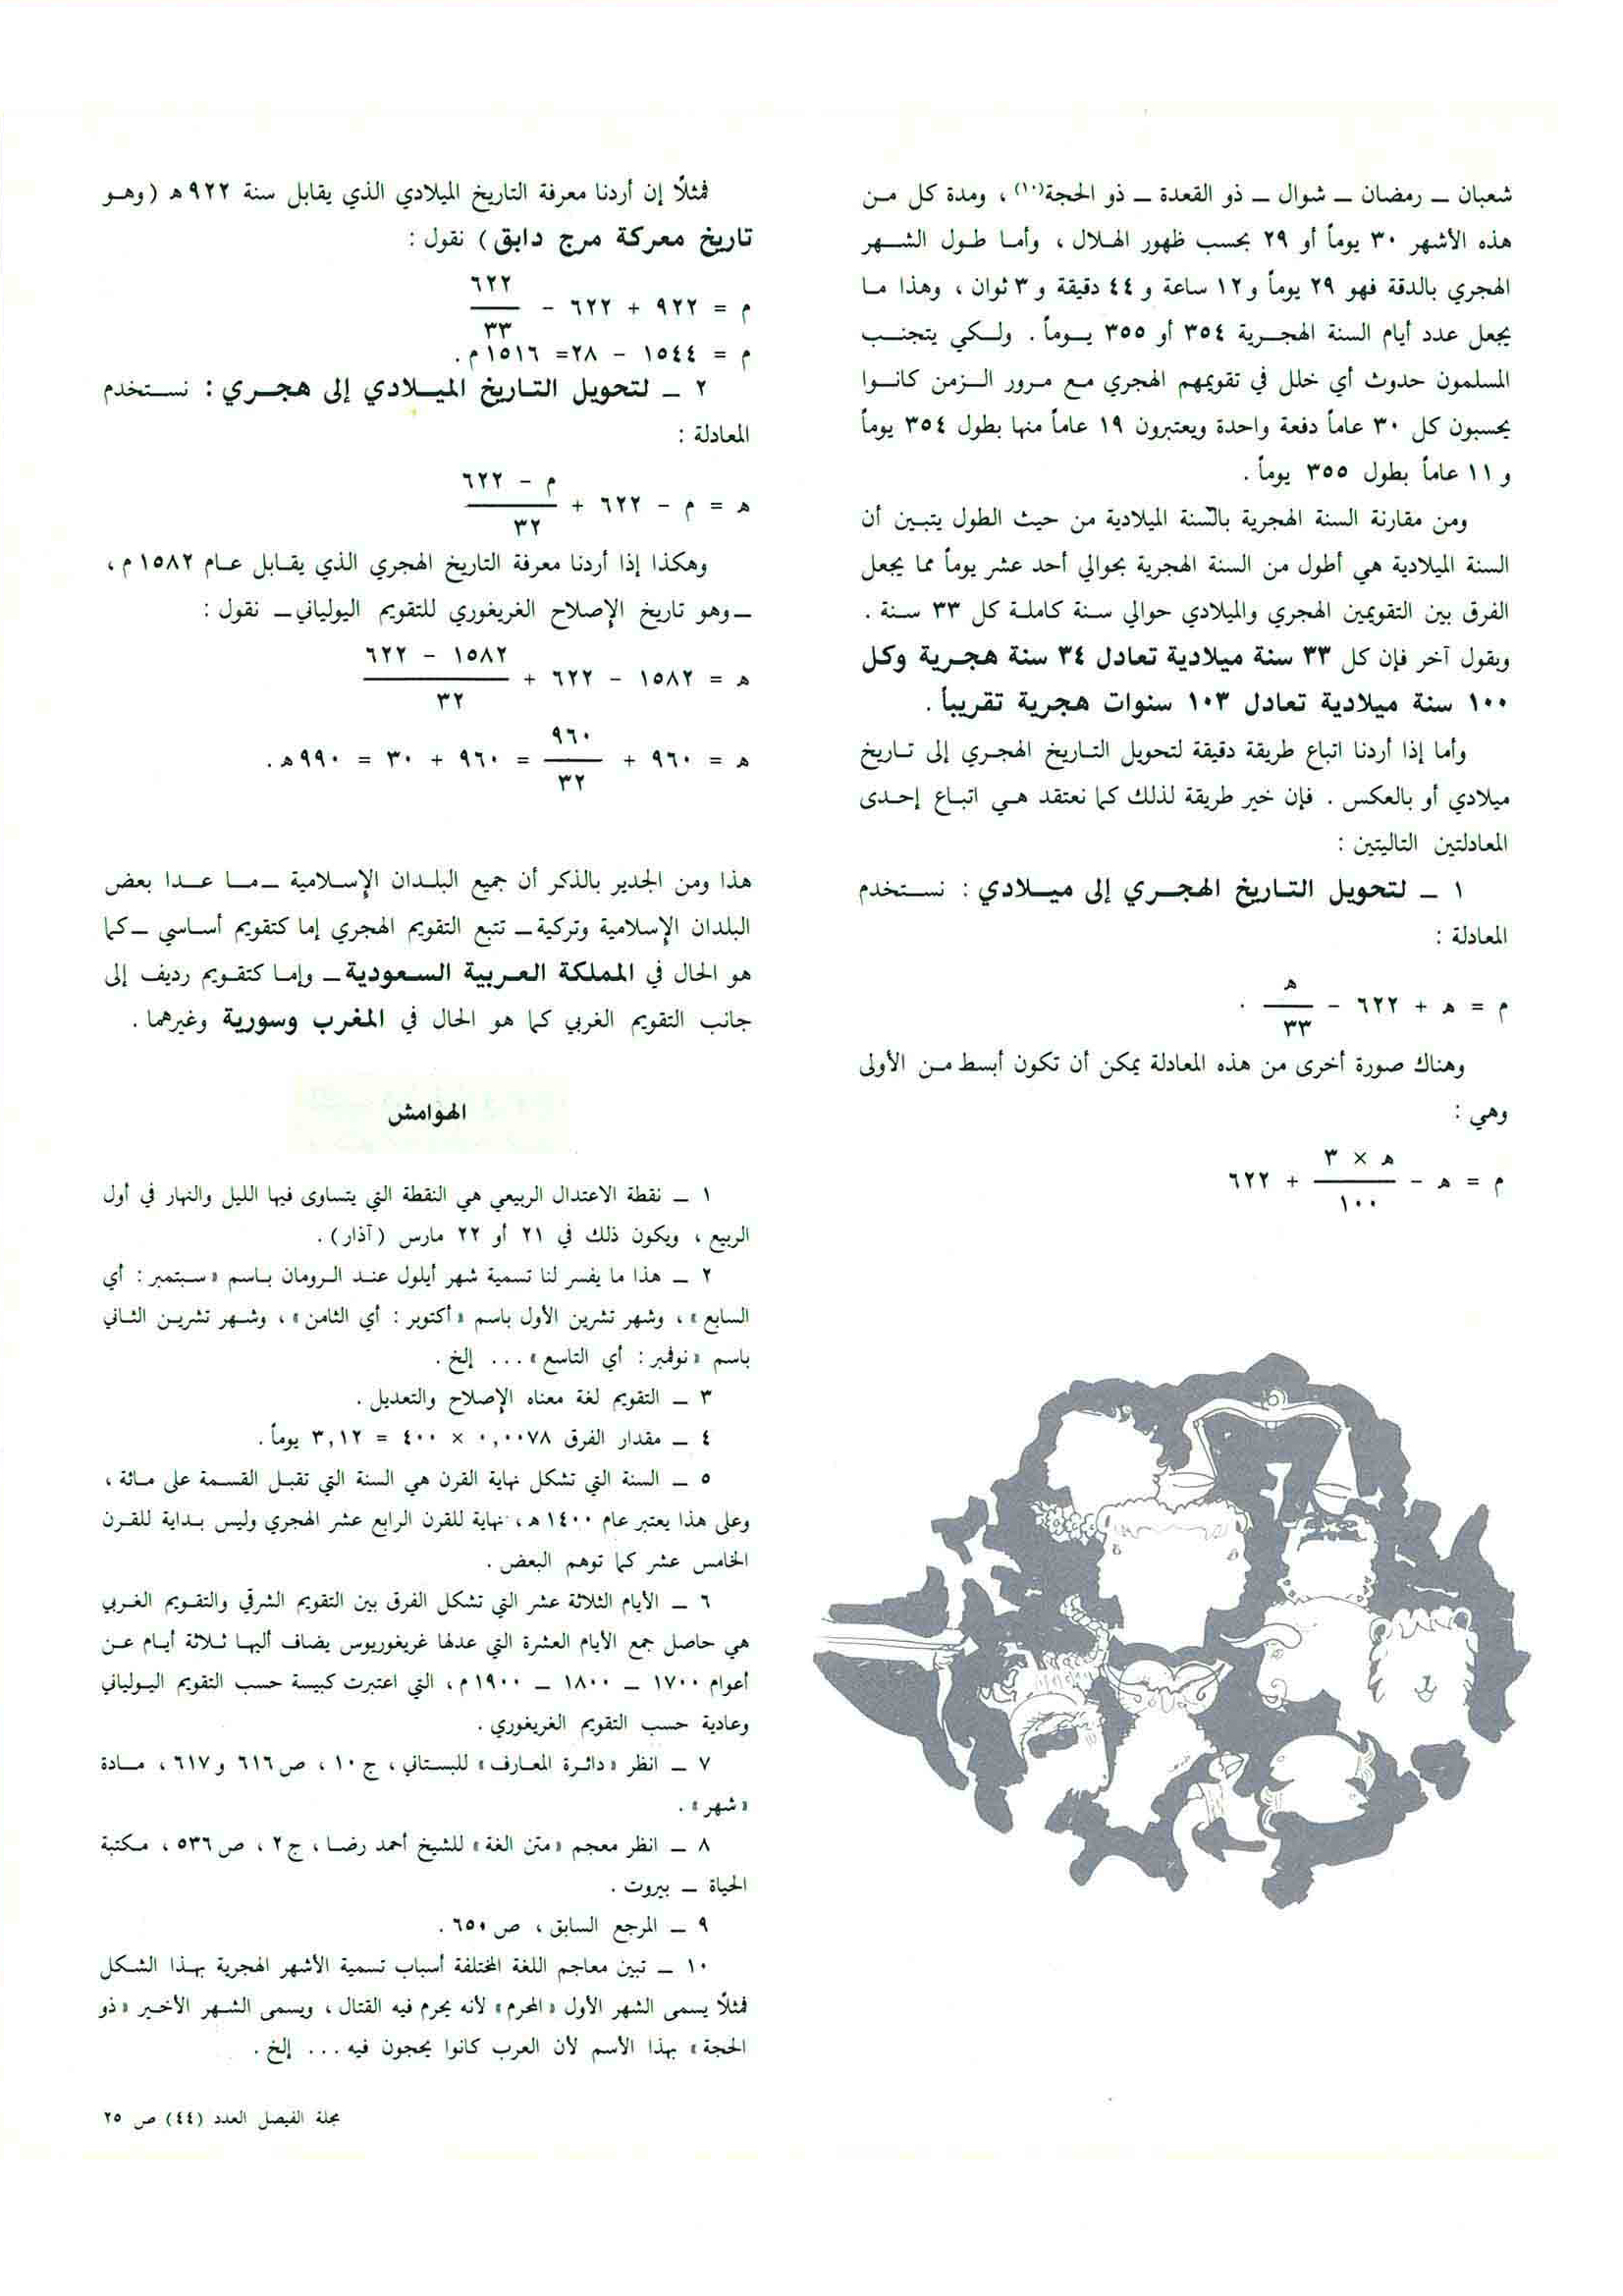 شعبان ــ رمضان ــ شوال ــ ذو القعدة ــ ذو الحجة(١٠) ، ومدة كل من
هذه الأشهر ٣٠ يوماً أو ٢٩ بحسب ظهور الهلال ، وأما طول الشهر
الهجري بالدقة فهو ٢٩ يوماً و١٢ ساعة و٤٤ دقيقة و٣ ثوان ، وهذا ما
يجعل عدد أيام السنة الهجرية ٣٥٤ أو ٣٥٥ يوماً . ولكي يتجنب
المسلمون حدوث أي خلل في تقويمهم الهجري مع مرور الزمن كانوا
يحسبون كل ٣٠ عاماً دفعة واحدة ويعتبرون ١٩ عاماً منها بطول ٣٥٤ يوماً
و ١١ عاماً بطول ٣٥٥ يوماً .
ومن مقارنة السنة الهجرية بالسنة الميلادية من حيث الطول يتبين أن
السنة الميلادية هي أطول من السنة الهجرية بحوالي أحد عشر يوماً مما يجعل
الفرق بين التقويمين الهجري والميلادي حوالي سنة كاملة كل ٣٣ سنة .
وبقول آخر فإن كل ٣٣ سنة ميلادية تعادل ٣٤ سنة هجرية وكل
١٠٠ سنة ميلادية تعادل ١٠٣ سنوات هجرية تقريباً .
وأما إذا أردنا اتباع طريقة دقيقة لتحويل التاريخ الهجري إلى تاريخ
ميلادي أو بالعكس . فإن خير طريقة لذلك كما نعتقد هي اتباع إحدى
المعادلتين التاليتين :
١ ــ لتحويل التاريخ الهجري إلى ميلادي : نستخدم
المعادلة :
هـ
م = هـ + ٦٢٢ − ــــ .
٣٣
وهناك صورة أخرى من هذه المعادلة يمكن أن تكون أبسط من الأولى
وهي :
هـ × ٣
م = هـ − ــــــــ + ٦٢٢
١٠٠
فمثلًا إن أردنا معرفة التاريخ الميلادي الذي يقابل سنة ٩٢٢ هـ (وهو
تاريخ معركة مرج دابق) نقول :
٦٢٢
م = ٩٢٢ + ٦٢٢ − ــــ
٣٣
م = ١٥٤٤ − ٢٨ = ١٥١٦ م .
٢ ــ لتحويل التاريخ الميلادي إلى هجري : نستخدم
المعادلة :
م − ٦٢٢
هـ = م − ٦٢٢ + ــــــــ
٣٢
وهكذا إذا أردنا معرفة التاريخ الهجري الذي يقابل عام ١٥٨٢ م ،
ــ وهو تاريخ الإصلاح الغريغوري للتقويم اليولياني ــ نقول :
١٥٨٢ − ٦٢٢
هـ = ١٥٨٢ − ٦٢٢ + ــــــــــــ
٣٢
٩٦٠
هـ = ٩٦٠ + ــــ = ٩٦٠ + ٣٠ = ٩٩٠ هـ .
٣٢
هذا ومن الجدير بالذكر أن جميع البلدان الإسلامية ــ ما عدا بعض
البلدان الإسلامية وتركية ــ تتبع التقويم الهجري إما كتقويم أساسي ــ كما
هو الحال في المملكة العربية السعودية ــ وإما كتقويم رديف إلى
جانب التقويم الغربي كما هو الحال في المغرب وسورية وغيرهما .
الهوامش
١ ــ نقطة الاعتدال الربيعي هي النقطة التي يتساوى فيها الليل والنهار في أول
الربيع ، ويكون ذلك في ٢١ أو ٢٢ مارس (آذار) .
٢ ــ هذا ما يفسر لنا تسمية شهر أيلول عند الرومان باسم «سبتمبر : أي
السابع» ، وشهر تشرين الأول باسم «أكتوبر : أي الثامن» ، وشهر تشرين الثاني
باسم «نوفمبر : أي التاسع» ... إلخ .
٣ ــ التقويم لغة معناه الإصلاح والتعديل .
٤ ــ مقدار الفرق ٠,٠٠٧٨ × ٤٠٠ = ٣,١٢ يوماً .
٥ ــ السنة التي تشكل نهاية القرن هي السنة التي تقبل القسمة على مائة ،
وعلى هذا يعتبر عام ١٤٠٠ هـ ، نهاية للقرن الرابع عشر الهجري وليس بداية للقرن
الخامس عشر كما توهم البعض .
٦ ــ الأيام الثلاثة عشر التي تشكل الفرق بين التقويم الشرقي والتقويم الغربي
هي حاصل جمع الأيام العشرة التي عدلها غريغوريوس يضاف أليها ثلاثة أيام عن
أعوام ١٧٠٠ ــ ١٨٠٠ ــ ١٩٠٠ م ، التي اعتبرت كبيسة حسب التقويم اليولياني
وعادية حسب التقويم الغريغوري .
٧ ــ انظر «دائرة المعارف» للبستاني ، ج ١٠ ، ص ٦١٦ و ٦١٧ ، مادة
«شهر» .
٨ ــ انظر معجم «متن الغة» للشيخ أحمد رضا ، ج ٢ ، ص ٥٣٦ ، مكتبة
الحياة ــ بيروت .
٩ ــ المرجع السابق ، ص ٦٥٠ .
١٠ ــ تبين معاجم اللغة المختلفة أسباب تسمية الأشهر الهجرية بهذا الشكل
فمثلًا يسمى الشهر الأول «المحرم» لأنه يحرم فيه القتال ، ويسمى الشهر الأخير «ذو
الحجة» بهذا الأسم لأن العرب كانوا يحجون فيه ... إلخ .
مجلة الفيصل العدد (٤٤) ص ٢٥